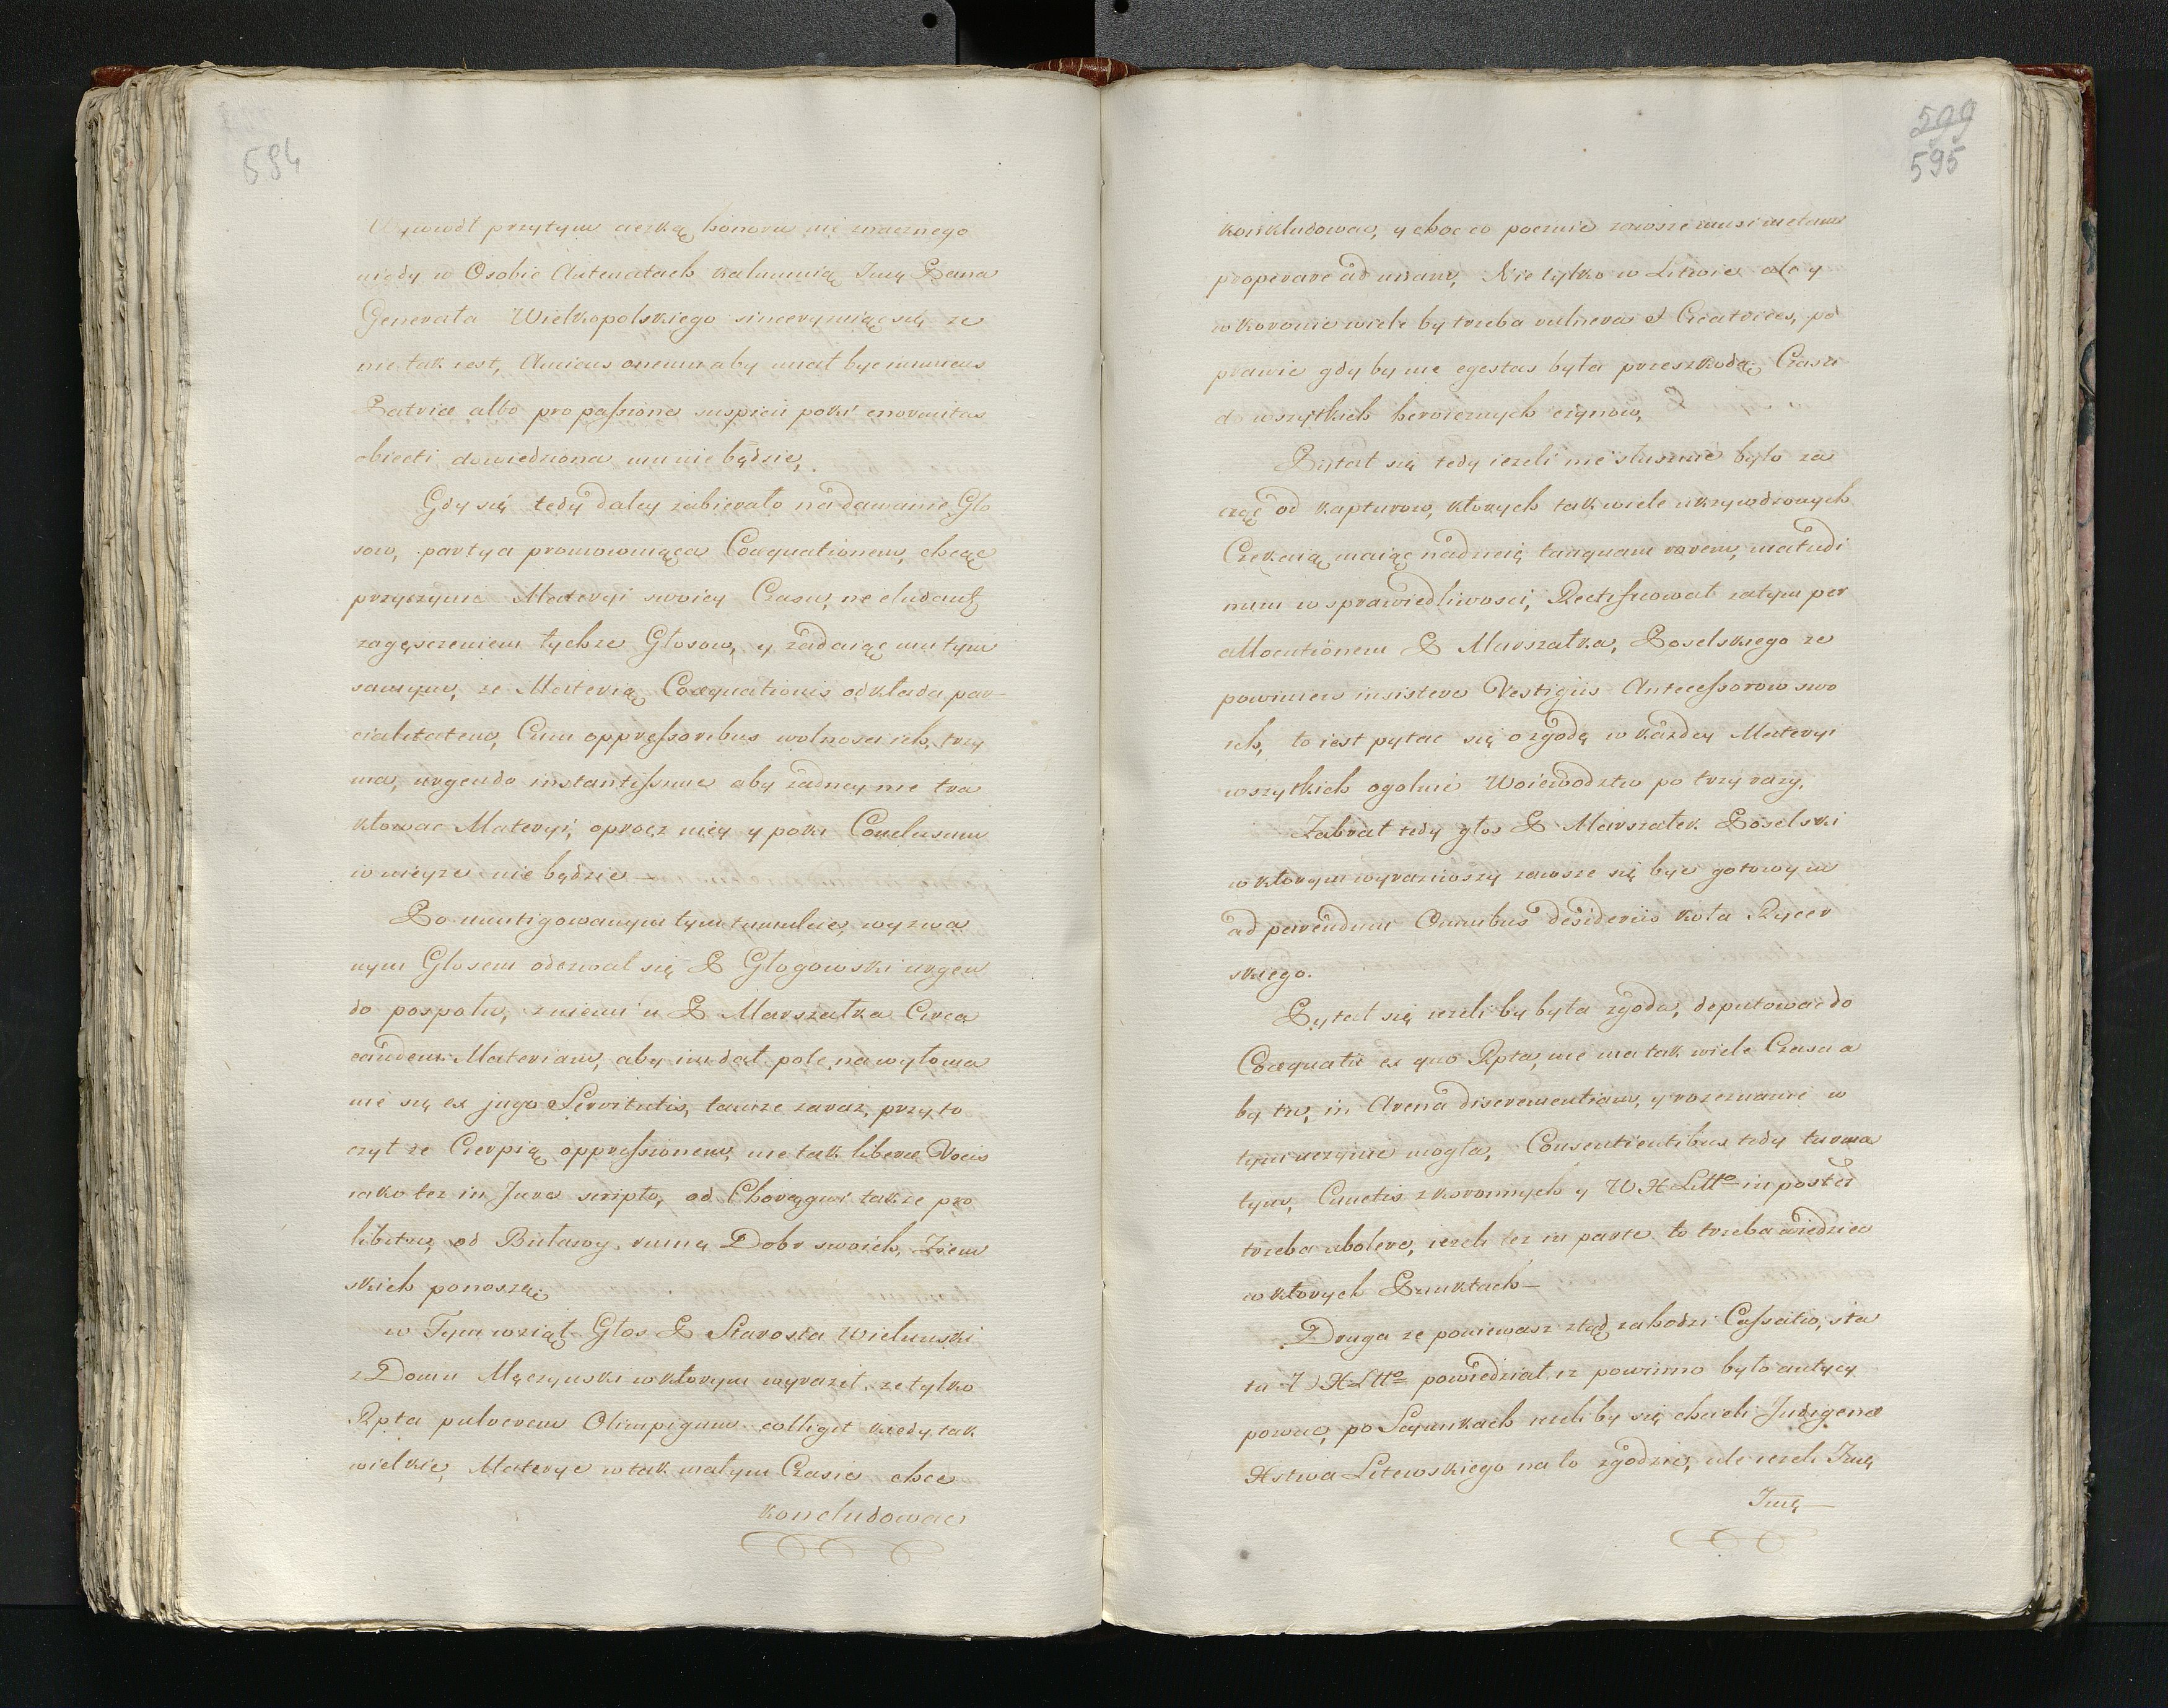 594
Wywodł przytym cięzką honoru nie znacznego
nigdy w Osobie Antenatach kalumnią Jmę Pana
Generała Wielkopolskiego sincerymiąc się ze
nie tak iest, Amicus onemu aby miał byc inimicus
Patriæ albo pro passione suspicii poki enormitas
obiecti dowiedziona mu nie będzie,
Gdy się tedy daley zabierało nádawanie Gło
sow, partya promowuiąca Coæquationem, chcąc
przyczynic Materyi swoiey Czasu, ne eludant
zagęszczeniem tychze Głosow, y zadaiąc mu tym
samym, ze Materią Coæquationis odklada par-
cialitatem, Cum oppressoribus wolnosci ich, trzy
ma, urgendo instantissime aby żadney nie tra
ktowac Materyi, oprocz niey y poki Conclusum
w nieyze nie będzie —
Po mentigowanym tym tumulcie, wyzwa
nym Głosem odezwał się P Głogowski urgen
do pospołu, z niemi u P Marszałka Circa
eandem Materiam, aby im dał pole, na wyłoma
nie się ex jugo Servitutis, tamze zaraz, przyto
czył ze Cierpią oppressionem, nie tak liberæ Vocis
iako tez in Jure scripto, od Chorągwi takze pro
libitu, od Buławy, ruinę Dobr swoich, Ziem
skich ponoszą,
w Tym wziął Głos P Starosta Wielunski
z Domu Męczynski w ktorym wyraził, ze tylko
Rpta pulverem Olimpigum colligit kiedy tak
wielkie, Materye w tak małym Czasie chce
konkludowac
599
595
konkludowac, y choc co pocznie zawsze musi metam
properare ad unam, Nie tylko w Litwie ale y
w koronie wiele by trzeba vulnera & Cicatrices, po
prawic gdy by nie egestas była przeszkodą, Czasu
d wszytkich heroicznych czynow,
Pytał się tedy iezeli nie słusznie było za
cząc od kapturow, ktorych tak wiele ukrzywdzonych
Czekaią maiąc nadzieię tanquam rorem, matudi
num w sprawiedliwosci, Rectifikował zatym per
allocutionem P Marszałka, Poselskiego ze
powinien insistere Vestigiis Antecessorow swo
ich, to iest pytac się o zgodę w każdey Materyi
wszytkich ogolnie Woiewodztw po trzy razy,
Zabrał tedy głos P Marszałek Poselski
w ktorym wyraziwszy zawsze się byc gotowym
ad parendum Omnibus desideriis koła Rycer
skiego.
Pytał się iezeli by była zgoda, deputowac do
Coæquatii ex quo Rpta, nie ma tak wiele Czasu a
by tu, in Arena discrementiam, y rozeznanie w
tym uczynic mogła, Consentientibus tedy turma
tym, Cunctis z koronnych y W X Litto in poster
trzeba abolere, iezeli tez in parte to trzeba wiedziec
w ktorych Punktach —
Druga ze poniewasz ztąd zahodzi Cassatio, sta
tu W X Litto powiedział iz powinno było antycy
powac, po Seymikach ieżeli by się chcieli Indigenæ
Xstwa Litewskiego na to zgodzic, ale iezeli Jmę
Jmę —